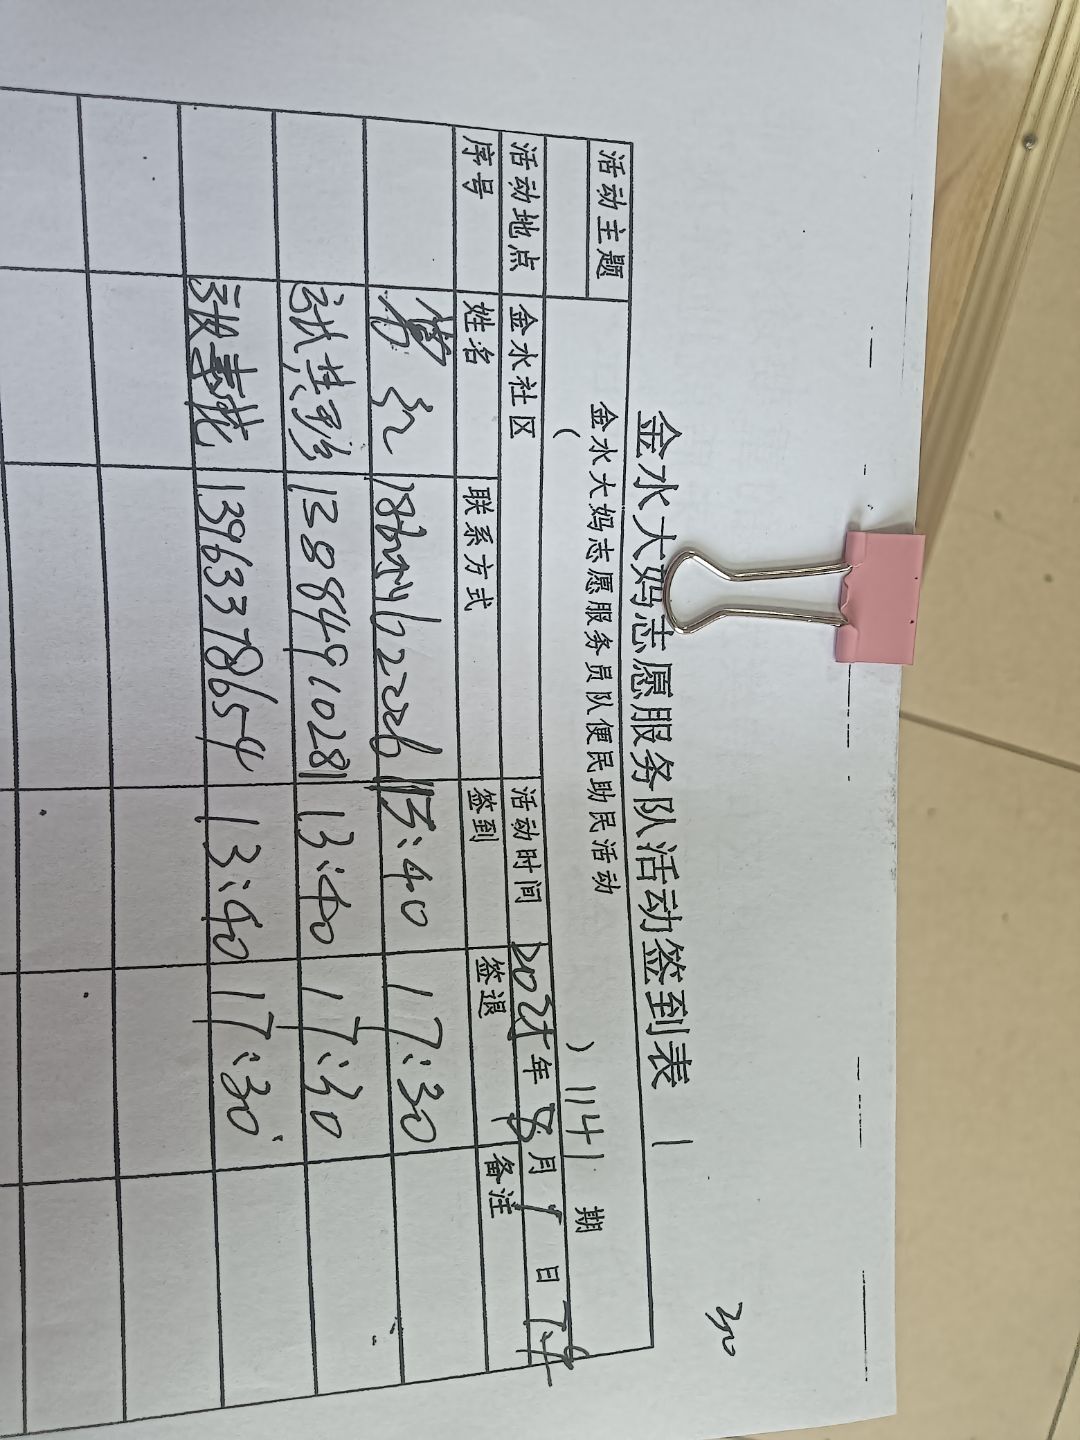 金水大妈志愿服务队活动签到表
活动主题 金水大妈志愿服务员队便民助民活动
( ) 1141 期
活动地点 金水社区 活动时间 年 8 月 1 日
序号 姓名 联系方式 签到 签退 备注
红 13:40 17:30
13884910281 13:40 17:30
张 13963378654 13:40 17:30